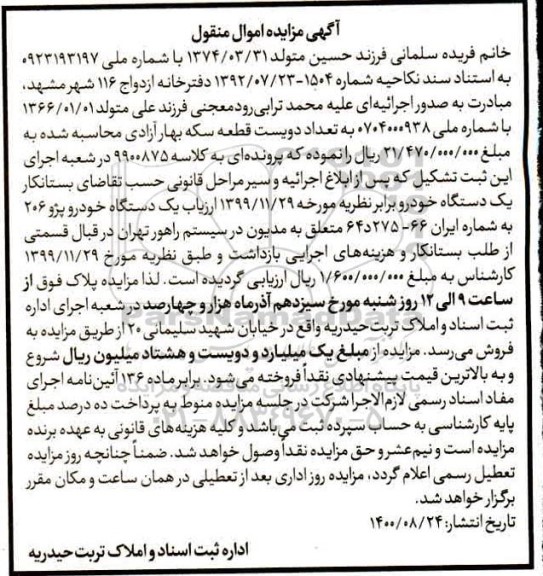 آگهی مزایده اموال منقول
خانم فریده سلمانی فرزند حسین متولد ۱۳۷۴/۰۳/۳۱ با شماره ملی ۰۹۲۳۱۹۳۱۹۷
به استناد سند نکاحیه شماره ۱۵۰۴-۱۳۹۲/۰۷/۲۳ دفترخانه ازدواج ۱۱۶ شهر مشهد،
مبادرت به صدور اجرائیه‌ای علیه محمد ترابی رودمعجنی فرزند علی متولد ۱۳۶۶/۰۱/۰۱
با شماره ملی ۰۷۰۴۰۰۰۹۳۸ به تعداد دویست قطعه سکه بهار آزادی محاسبه شده به
مبلغ ۲۱/۴۷۰/۰۰۰/۰۰۰ ریال را نموده که پرونده‌ای به کلاسه ۹۹۰۰۸۷۵ در شعبه اجرای
این ثبت تشکیل که پس از ابلاغ اجرائیه و سیر مراحل قانونی حسب تقاضای بستانکار
یک دستگاه خودرو برابر نظریه مورخه ۱۳۹۹/۱۱/۲۹ ارزیاب یک دستگاه خودرو پژو ۲۰۶
به شماره ایران ۶۶-۲۷۵د۶۴ متعلق به مدیون در سیستم راهور تهران در قبال قسمتی
از طلب بستانکار و هزینه‌های اجرایی بازداشت و طبق نظریه مورخ ۱۳۹۹/۱۱/۲۹
کارشناس به مبلغ ۱/۶۰۰/۰۰۰/۰۰۰ ریال ارزیابی گردیده است. لذا مزایده پلاک فوق از
ساعت ۹ الی ۱۲ روز شنبه مورخ سیزدهم آذرماه هزار و چهارصد در شعبه اجرای اداره
ثبت اسناد و املاک تربت حیدریه واقع در خیابان شهید سلیمانی ۲۰ از طریق مزایده به
فروش می‌رسد. مزایده از مبلغ یک میلیارد و دویست و هشتاد میلیون ریال شروع
و به بالاترین قیمت پیشنهادی نقداً فروخته می‌شود. برابر ماده ۱۳۶ آئین‌نامه اجرای
مفاد اسناد رسمی لازم‌الاجرا شرکت در جلسه مزایده منوط به پرداخت ده درصد مبلغ
پایه کارشناسی به حساب سپرده ثبت می‌باشد و کلیه هزینه‌های قانونی به عهده برنده
مزایده است و نیم عشر و حق مزایده نقداً وصول خواهد شد. ضمناً چنانچه روز مزایده
تعطیل رسمی اعلام گردد، مزایده روز اداری بعد از تعطیلی در همان ساعت و مکان مقرر
برگزار خواهد شد.
تاریخ انتشار: ۱۴۰۰/۰۸/۲۴
اداره ثبت اسناد و املاک تربت حیدریه